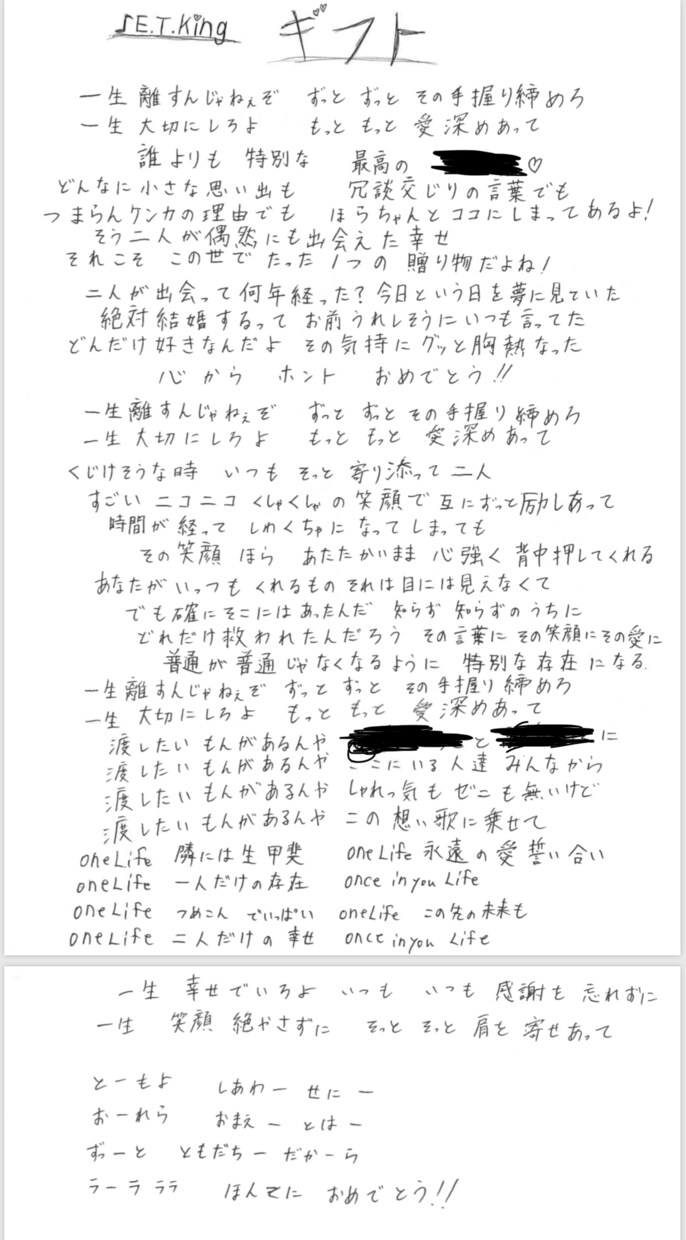 ♪E.T.King ギフト
一生 離すんじゃねぇぞ ずっと ずっと その手握り締めろ
一生 大切にしろよ もっと もっと 愛深めあって
誰よりも 特別な 最高の ♡
どんなに小さな思い出も 冗談交じりの言葉でも
つまらんケンカの理由でも ほらちゃんとココにしまってあるよ!
そう二人が偶然にも出会えた幸せ
それこそ この世で たった 1つの 贈り物だよね!
二人が出会って何年経った?今日という日を夢に見ていた
絶対結婚するって お前うれしそうにいつも言ってた
どんだけ好きなんだよ その気持にグッと胸熱なった
心から ホント おめでとう!!
一生離すんじゃねぇぞ ずっと ずっと その手握り締めろ
一生 大切にしろよ もっと もっと 愛深めあって
くじけそうな時 いつも そっと 寄り添って 二人
すごい ニコニコ くしゃくしゃの笑顔で 互にずっと励しあって
時間が 経って しわくちゃに なって しまっても
その笑顔 ほら あたたかいまま 心強く 背中押してくれる
あなたが いっつも くれるもの それは目には見えなくて
でも確にそこにはあったんだ 知らず 知らずのうちに
どれだけ救われたんだろう その言葉に その笑顔にその愛に
普通が普通じゃなくなるように 特別な存在になる
一生離すんじゃねぇぞ ずっと ずっと その手握り 締めろ
一生 大切にしろよ もっと もっと 愛深めあって
渡したい もんがあるんや と に
渡したい もんがあるんや ここにいる人達 みんなから
渡したい もんがあるんや しゃれっ気も ゼニも無いけど
渡したい もんがあるんや この 想い歌に乗せて
oneLife 隣には生甲斐 oneLife 永遠の愛誓い合い
oneLife 一人だけの存在 once in you Life
oneLife つめこん でいっぱい oneLife この先の未来も
oneLife 二人だけの 幸せ once in you Life
一生 幸せでいろよ いつも いつも 感謝を 忘れずに
一生 笑顔 絶やさずに そっと そっと 肩を 寄せあって
とーもよ しあわー せにー
おーれら おまえー とはー
ずっーと ともだちー だかーら
ラーラ ララ ほんまに おめでとう!!